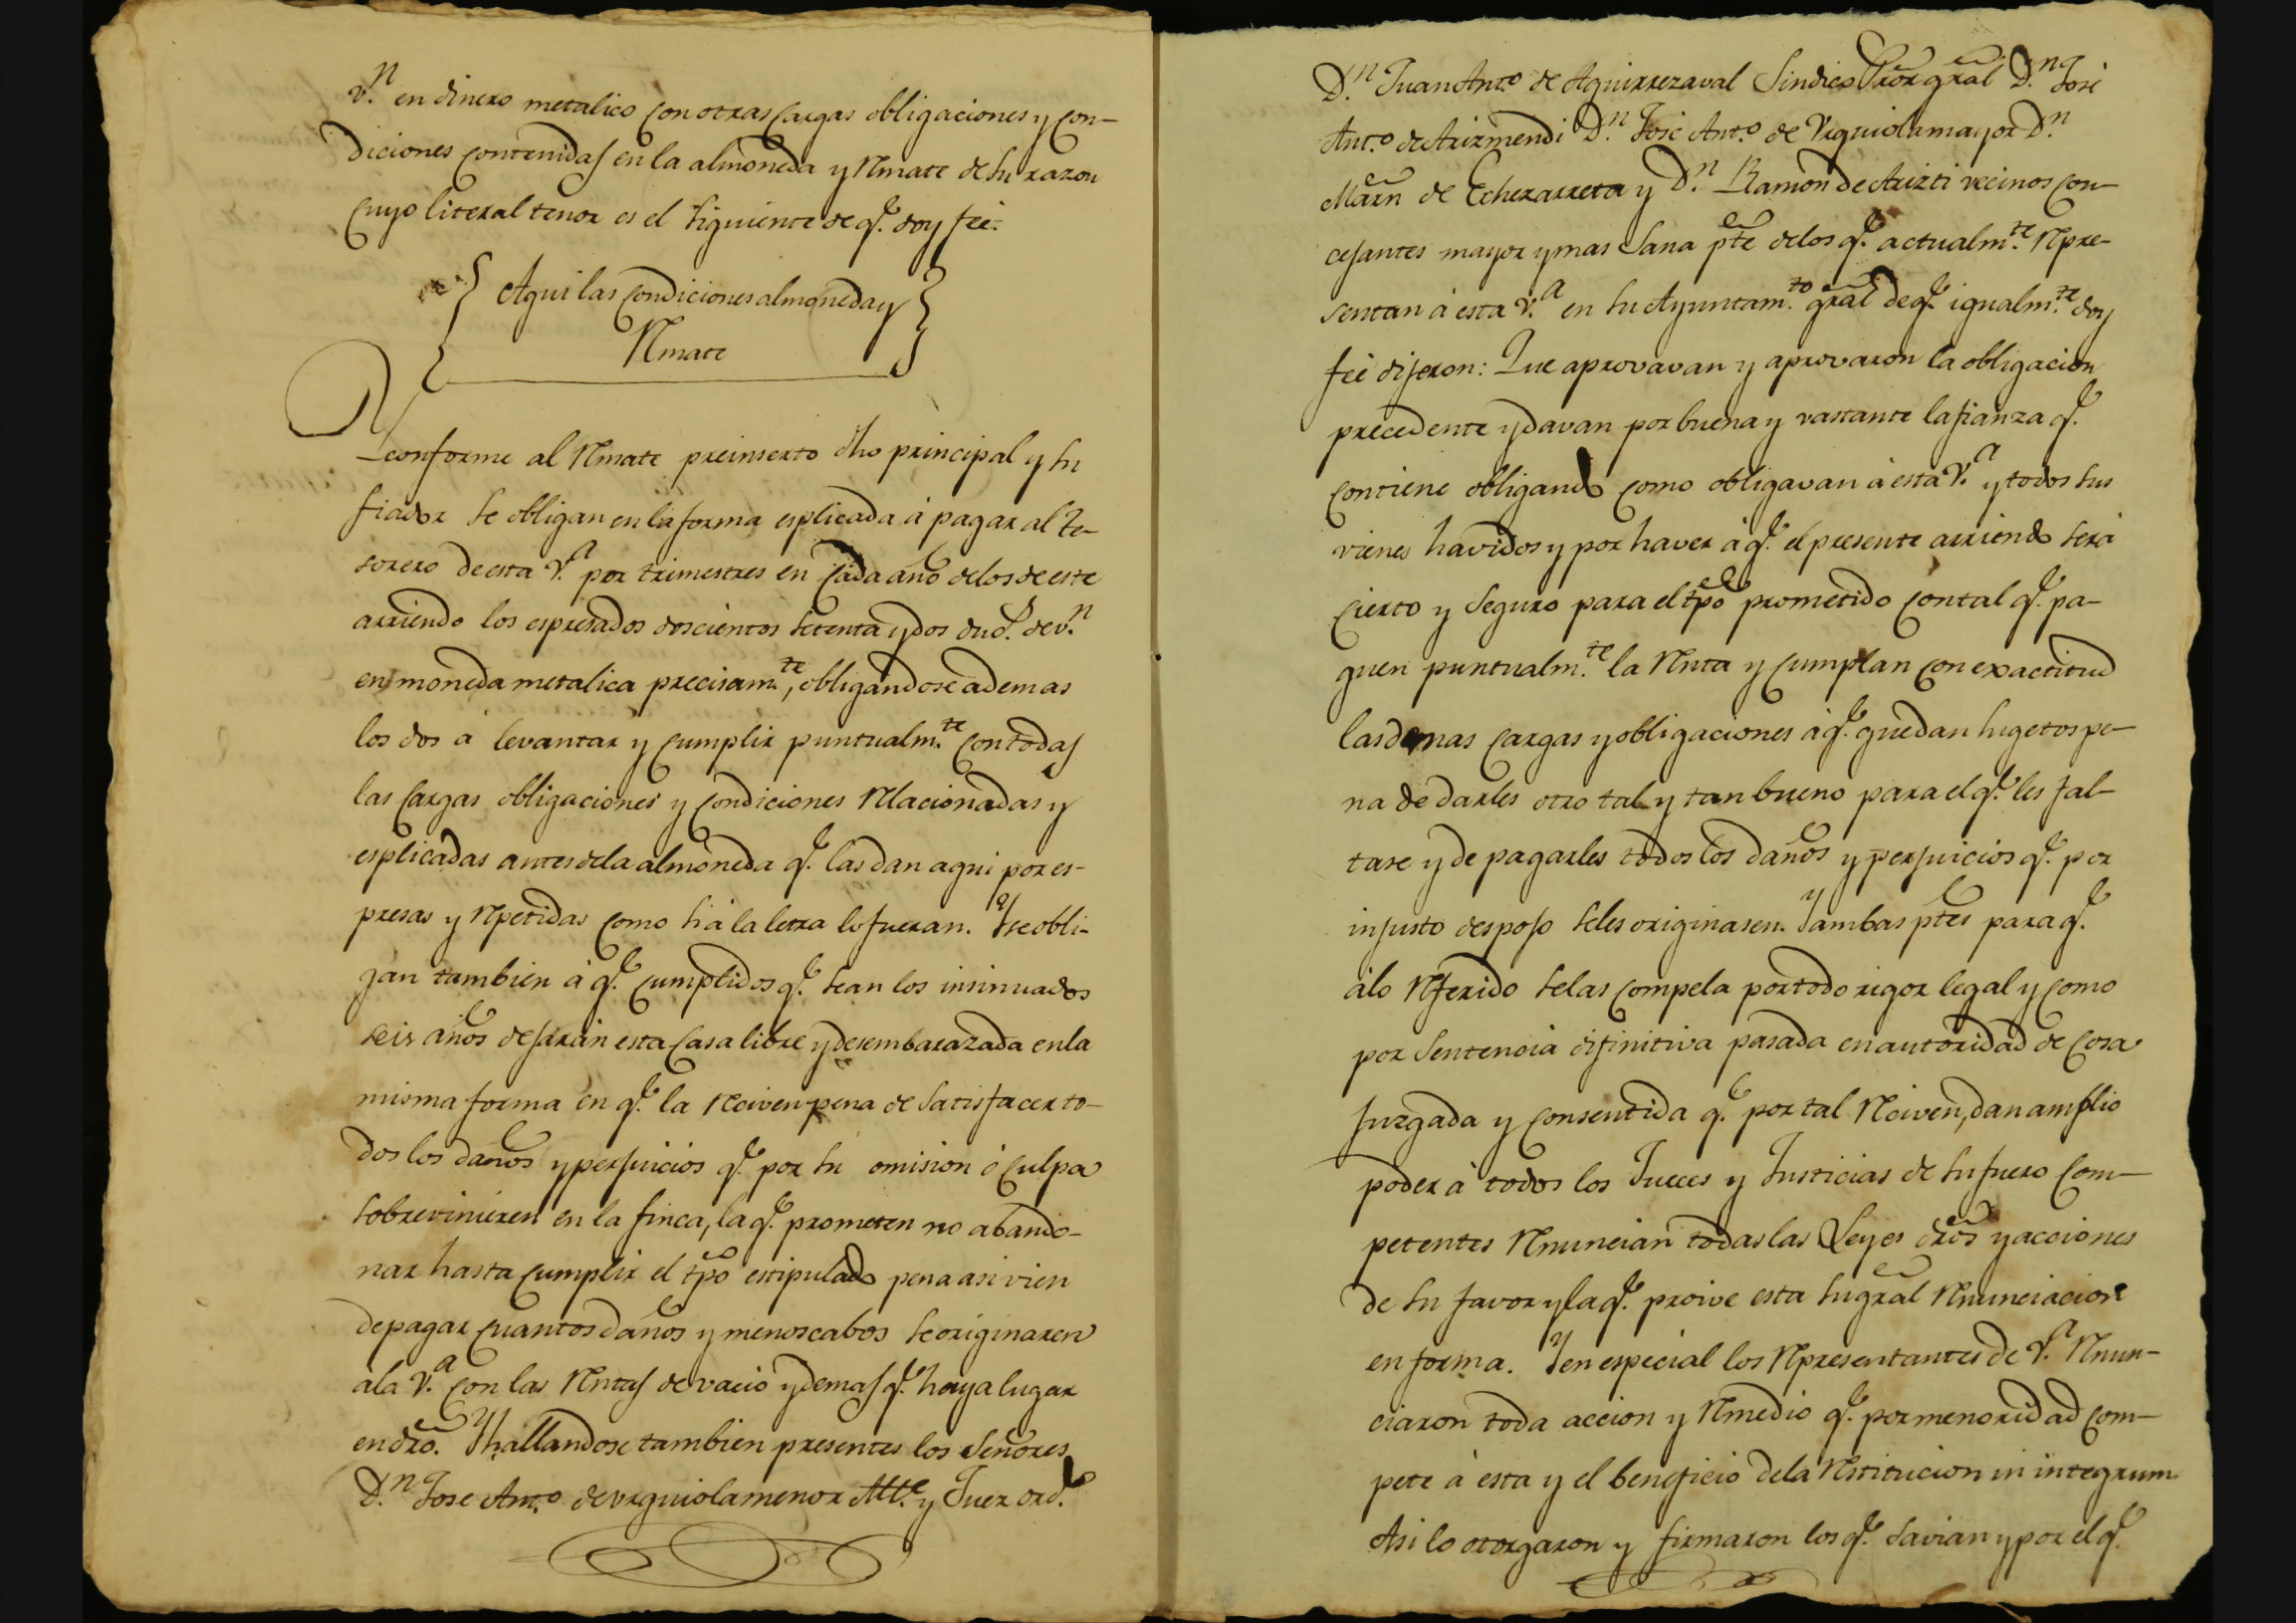 v.n en dinero metalico con otras cargas obligaciones y con-
diciones contenidas en la almoneda y Rmate de su razon
cuyo literal tenor es el siguiente de q.e doy fee.
Aqui las condiciones almoneda y
Rmate
Y conforme al Rmate preinserto dho principal y su
fiador se obligan en la forma esplicada à pagar al te-
sorero de esta V.a por trimestres en cada año de los de este
arriendo los espresados doscientos setenta y dos duc.s de v.n
en moneda metalica precisam.te, obligandose ademas
los dos à levantar y cumplir puntualm.te con todas
las cargas obligaciones y condiciones Rlacionadas y
esplicadas antes de la almoneda q.e las dan aqui por es-
presas y Rpetidas como si à la letra lo fueran. Y se obli-
gan tambien à q.e cumplidos q.e sean los insinuados
seis años dejarán esta casa libre y desembarazada en la
misma forma en q.e la Rciven pena de satisfacer to-
dos los daños y perjuicios q.e por su omision ó culpa
sobrevinieren en la finca, la q.e prometen no abando-
nar hasta cumplir el tpo estipulado pena asi vien
de pagar cuantos daños y menoscabos se originaren
à la V.a con las Rntas de vacio y demas q.e haya lugar
en dro. Y hallandose tambien presentes los Señores
D.n Jose Ant.o de Vrquiola menor Alc.e y Juez ord.o
D.n Juan Ant.o de Aguirrezaval Sindico Pror gral D.n José
Ant.o de Arizmendi D.n José Ant.o de Vrquiola mayor D.n
Marn de Echezarreta y D.n Ramon de Arizti vecinos con-
cejantes mayor y mas sana pte de los q.e actualm.te Rpre-
sentan à esta V.a en su Ayuntam.to gral de q.e igualm.te doy
feé dijeron: Que aprovavan y aprovaron la obligacion
precedente y davan por buena y vastante la fianza q.e
contiene obligando como obligavan à esta V.a y todos sus
vienes havidos y por haver à q.e el presente arriendo será
cierto y seguro para el tpo prometido con tal q.e pa-
guen puntualm.te la Rnta y cumplan con exactitud
las demas cargas y obligaciones à q.e quedan sugetos pe-
na de darles otro tal y tan bueno para el q.e les fal-
tare y de pagarles todos los daños y perjuicios q.e por
injusto despojo se les originasen. Y ambas ptes para q.e
à lo Rferido se las compela por todo rigor legal y como
por sentencia difinitiva pasada en autoridad de cosa
juzgada y consentida q.e por tal Rciven, dan amplio
poder à todos los Jueces y Justicias de su fuero com-
petentes Rnuncian todas las Leyes dros y acciones
de su favor y la q.e proive esta su gral Rnunciacion
en forma. Y en especial los Rpresentantes de V.a Rnun-
ciaron toda accion y Rmedio q.e por menoridad com-
pete à esta y el beneficio de la Rstitucion in integrum
Asi lo otorgaron y firmaron los q.e savian y por el q.e